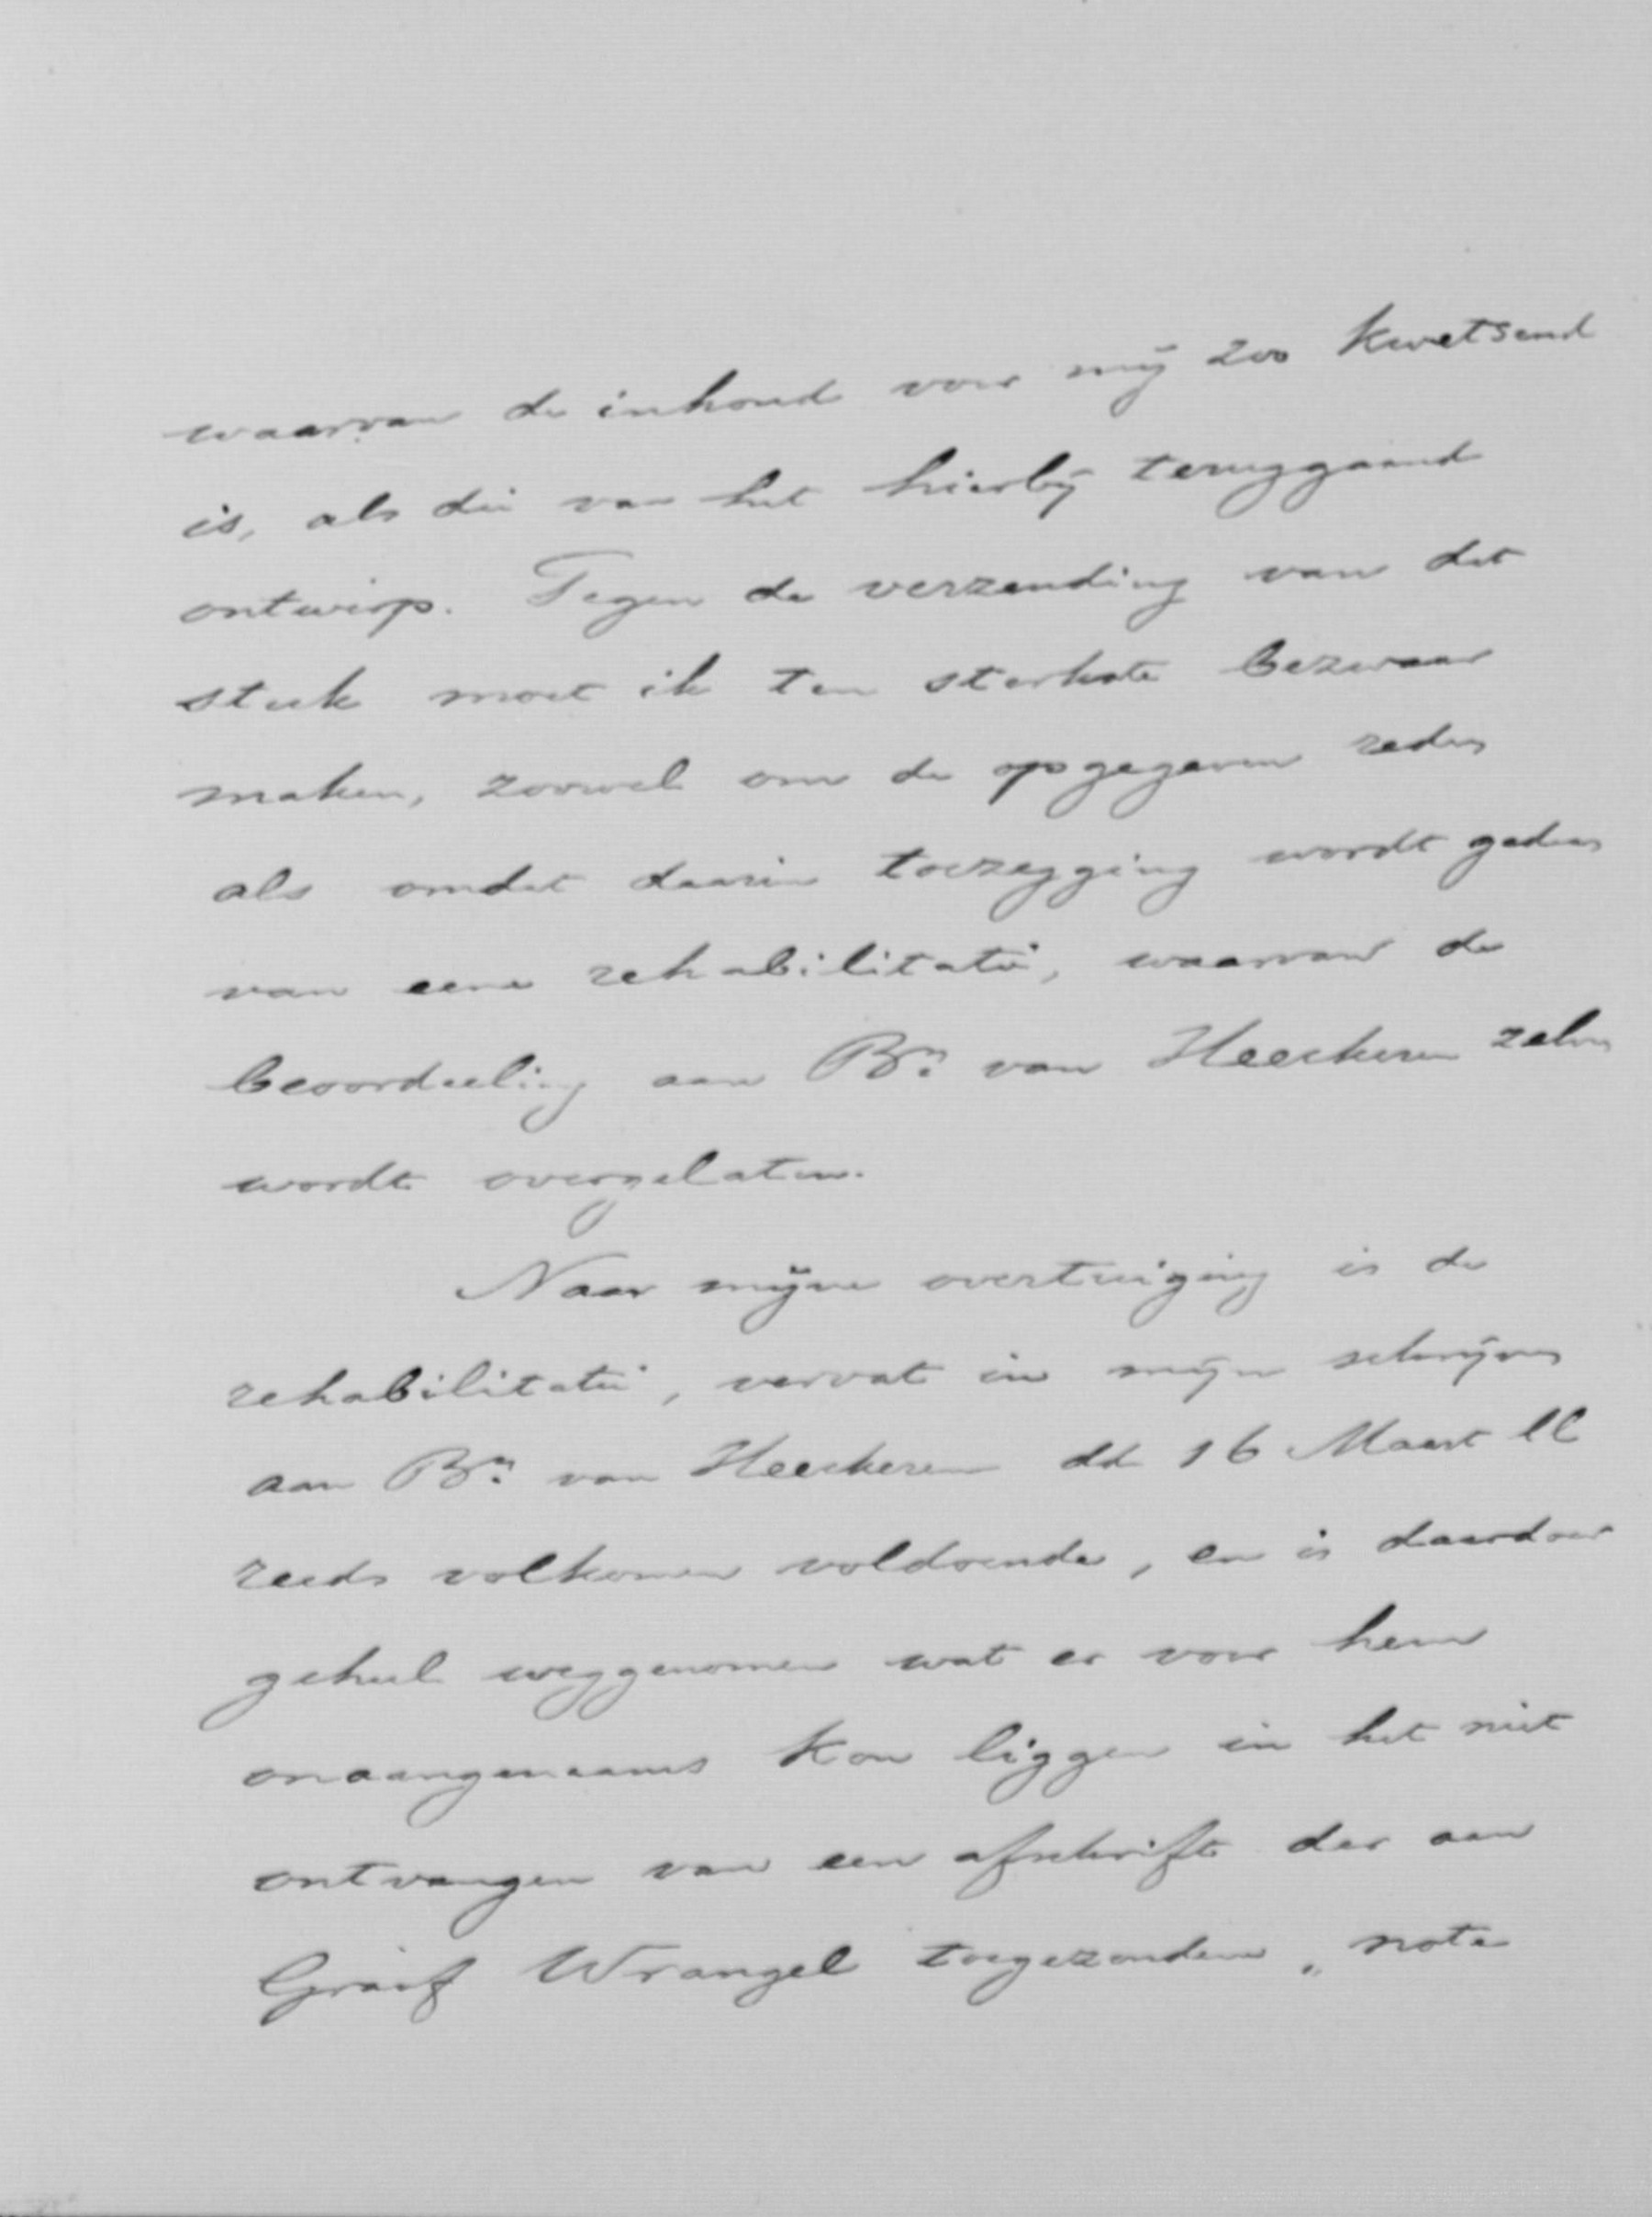 waarvan de inhoud voor mij zoo kwetsend
is, als die van het hierbij teruggaand
ontwerp. Tegen de verzending van dat
stuk moet ik ten sterkste bezwaar
maken, zoowel om de opgegeven reden
als omdat daarin toezegging wordt gedaan
van eene rehabilitatie, waarvan de
beoordeeling aan Bn. van Heeckeren zelven
wordt overgelaten.
Naar mijne overtuiging is de
rehabilitatie, vervat in mijn schrijven
aan Bn. van Heeckeren dd 16 Maart ll
reeds volkomen voldoende, en is daardoor
geheel weggenomen wat er voor hem
onaangenaams kon liggen in het niet
ontvangen van een afschrift der aan
Graaf Wrangel toegezonden „note